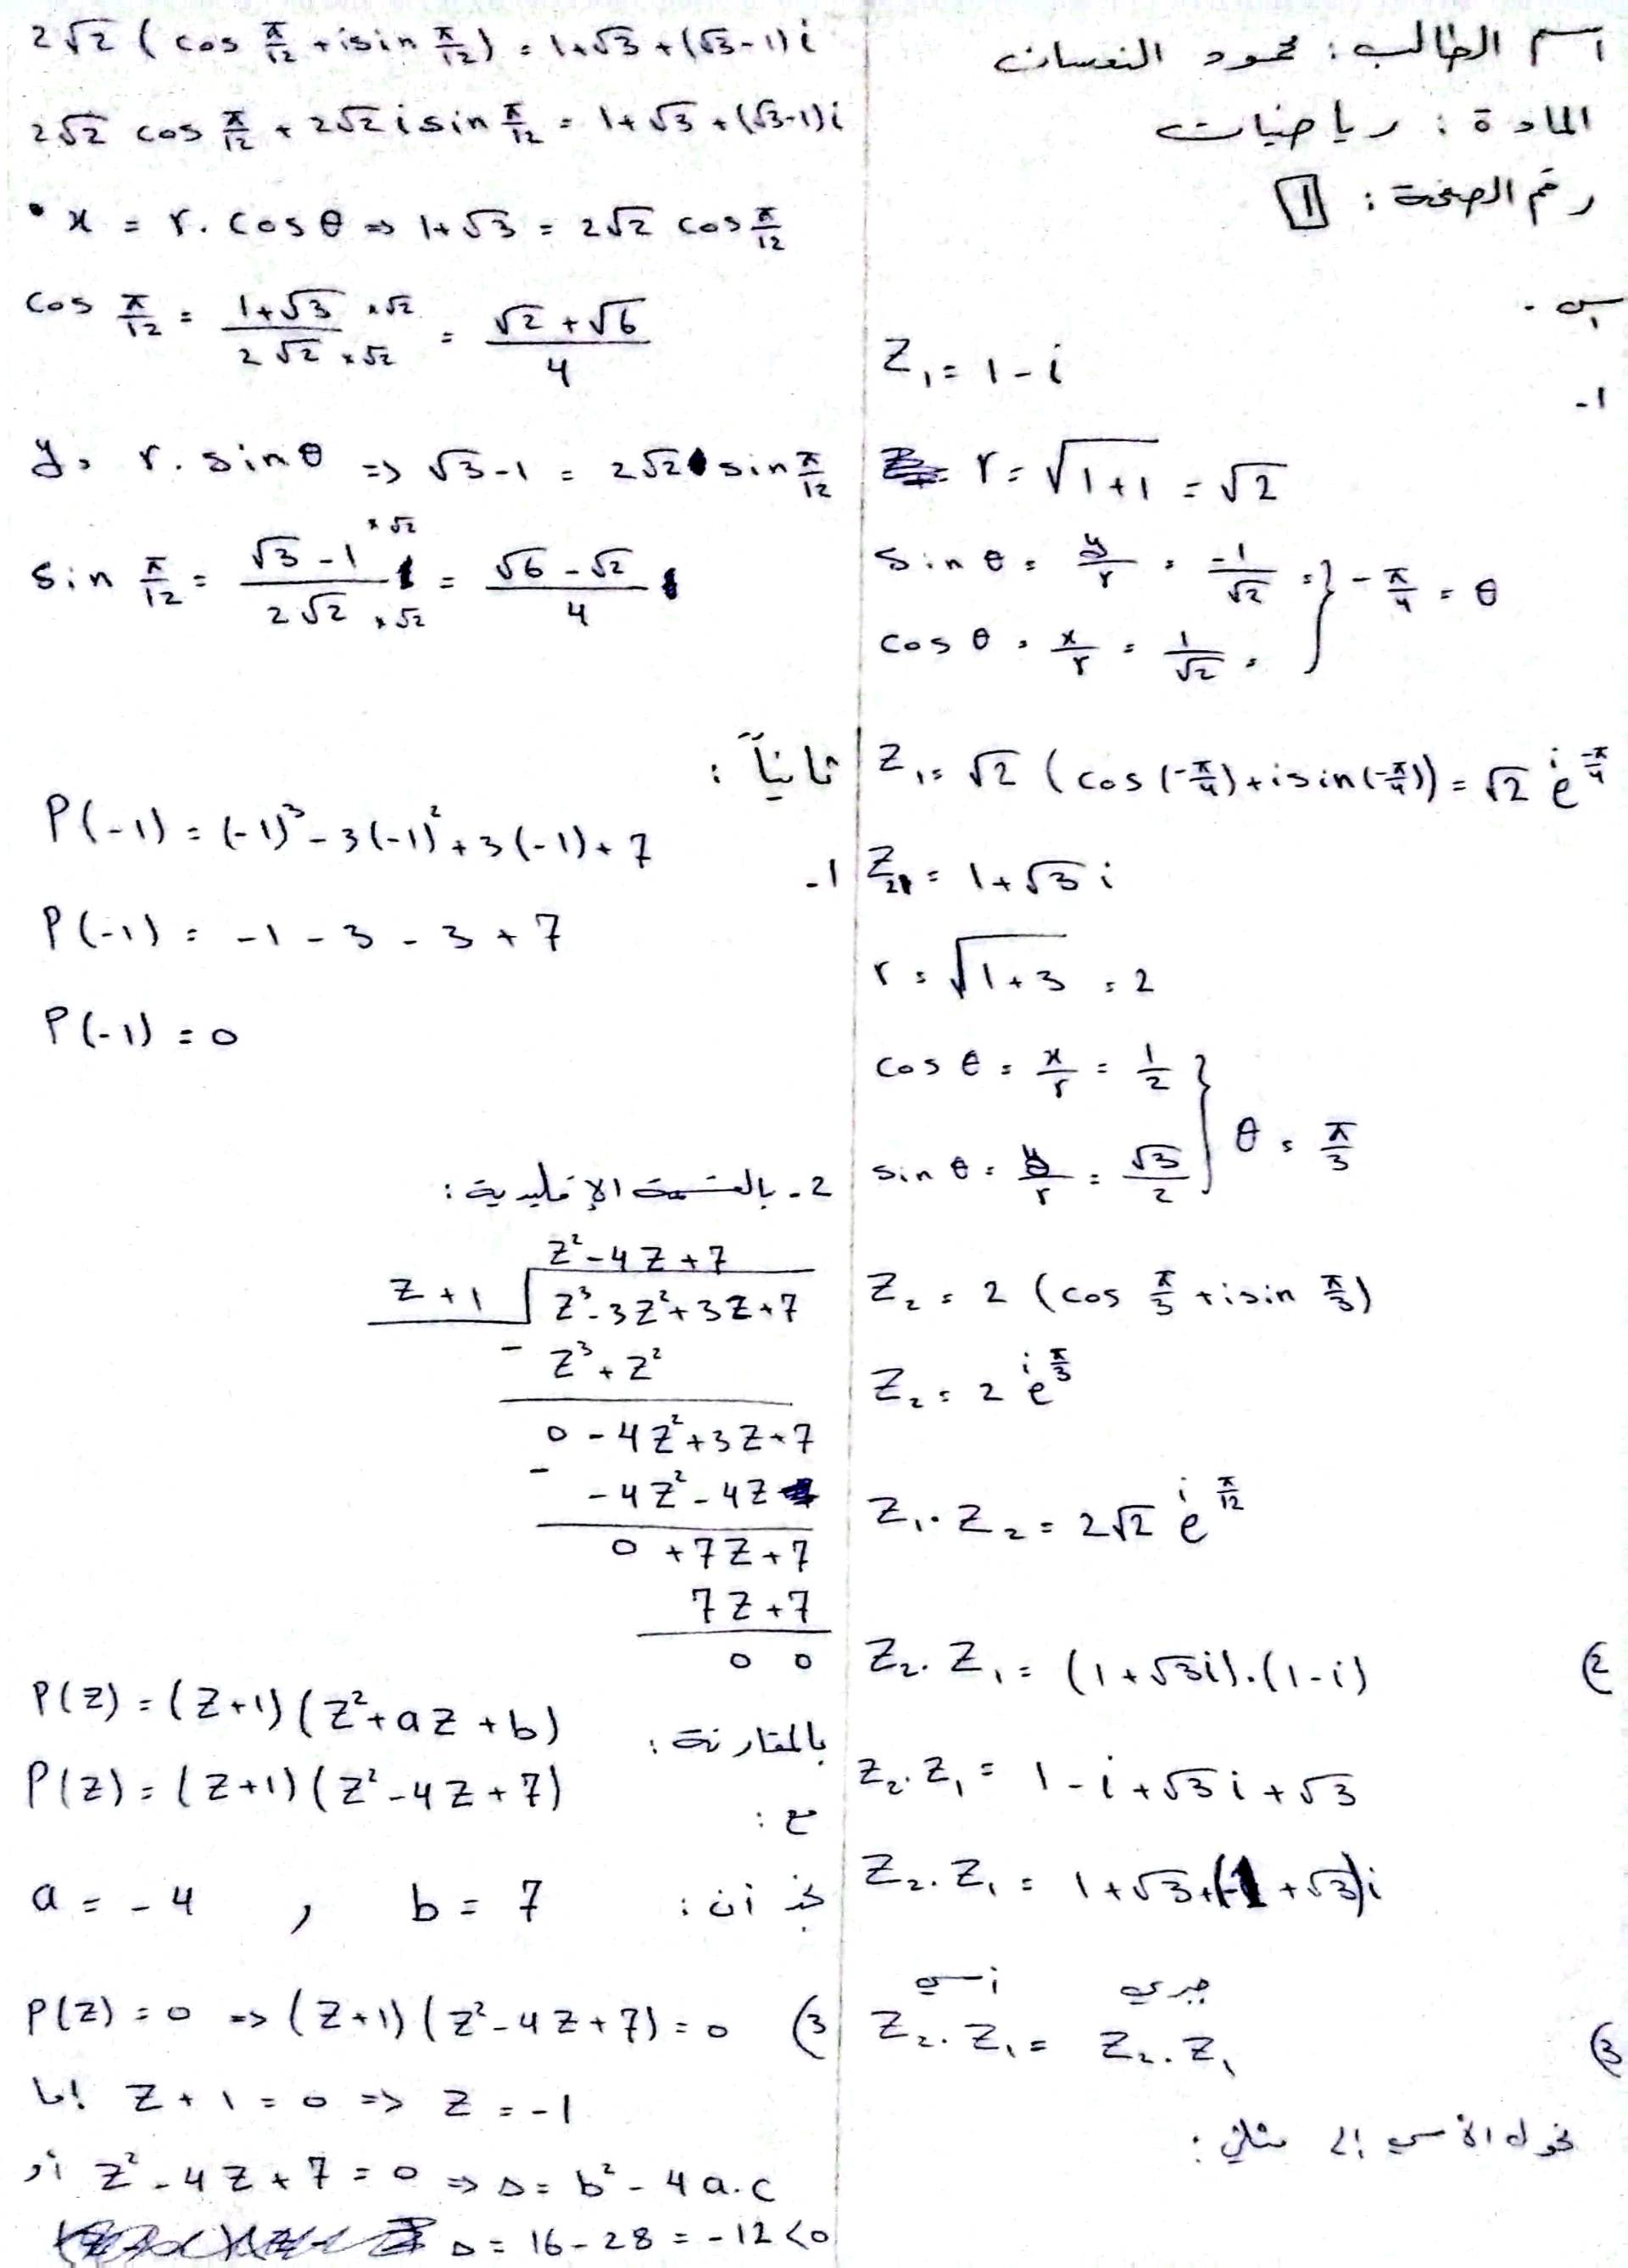 اسم الطالب : محمود النعسان
المادة : رياضيات
رقم الصفحة : 1
س .
1-
Z₁ = 1 - i
r = √(1+1) = √2
sin θ = y/r = -1/√2 = } -π/4 = θ
cos θ = x/r = 1/√2 =
Z₁ = √2 (cos (-π/4) + i sin (-π/4)) = √2 e^(i -π/4)
Z₂ = 1 + √3 i
r = √(1+3) = 2
cos θ = x/r = 1/2 } θ = π/3
sin θ = y/r = √3/2
Z₂ = 2 (cos π/3 + i sin π/3)
Z₂ = 2 e^(i π/3)
Z₁ . Z₂ = 2√2 e^(i π/12)
2) Z₂ . Z₁ = (1 + √3i).(1 - i)
Z₂ . Z₁ = 1 - i + √3 i + √3
Z₂ . Z₁ = 1 + √3 + (-1 + √3)i
أسي جبري
3) Z₂ . Z₁ = Z₂ . Z₁
نحول الأسي إلى مثلثي :
2√2 ( cos π/12 + i sin π/12 ) = 1+√3 + (√3 - 1) i
2√2 cos π/12 + 2√2 i sin π/12 = 1+√3 + (√3-1) i
• x = r . cos θ => 1+√3 = 2√2 cos π/12
cos π/12 = (1+√3 ×√2)/(2√2 ×√2) = (√2 + √6)/4
y = r . sin θ => √3-1 = 2√2 sin π/12
sin π/12 = (√3 - 1 ×√2)/(2√2 ×√2) = (√6 - √2)/4
ثانياً :
1- P(-1) = (-1)³ - 3(-1)² + 3(-1) + 7
P(-1) = -1 - 3 - 3 + 7
P(-1) = 0
2- بالقسمة الإقليدية :
Z² - 4Z + 7
Z + 1 Z³ - 3Z² + 3Z + 7
- Z³ + Z²
0 - 4Z² + 3Z + 7
- - 4Z² - 4Z
0 + 7Z + 7
7Z + 7
0 0
P(Z) = (Z+1) (Z² + aZ + b) بالمقارنة :
P(Z) = (Z+1) (Z² - 4Z + 7) مع :
نجد أن : a = -4 , b = 7
3) P(Z) = 0 => (Z+1) (Z² - 4Z + 7) = 0
إما Z + 1 = 0 => Z = -1
أو Z² - 4Z + 7 = 0 => Δ = b² - 4 a.c
Δ = 16 - 28 = -12 < 0